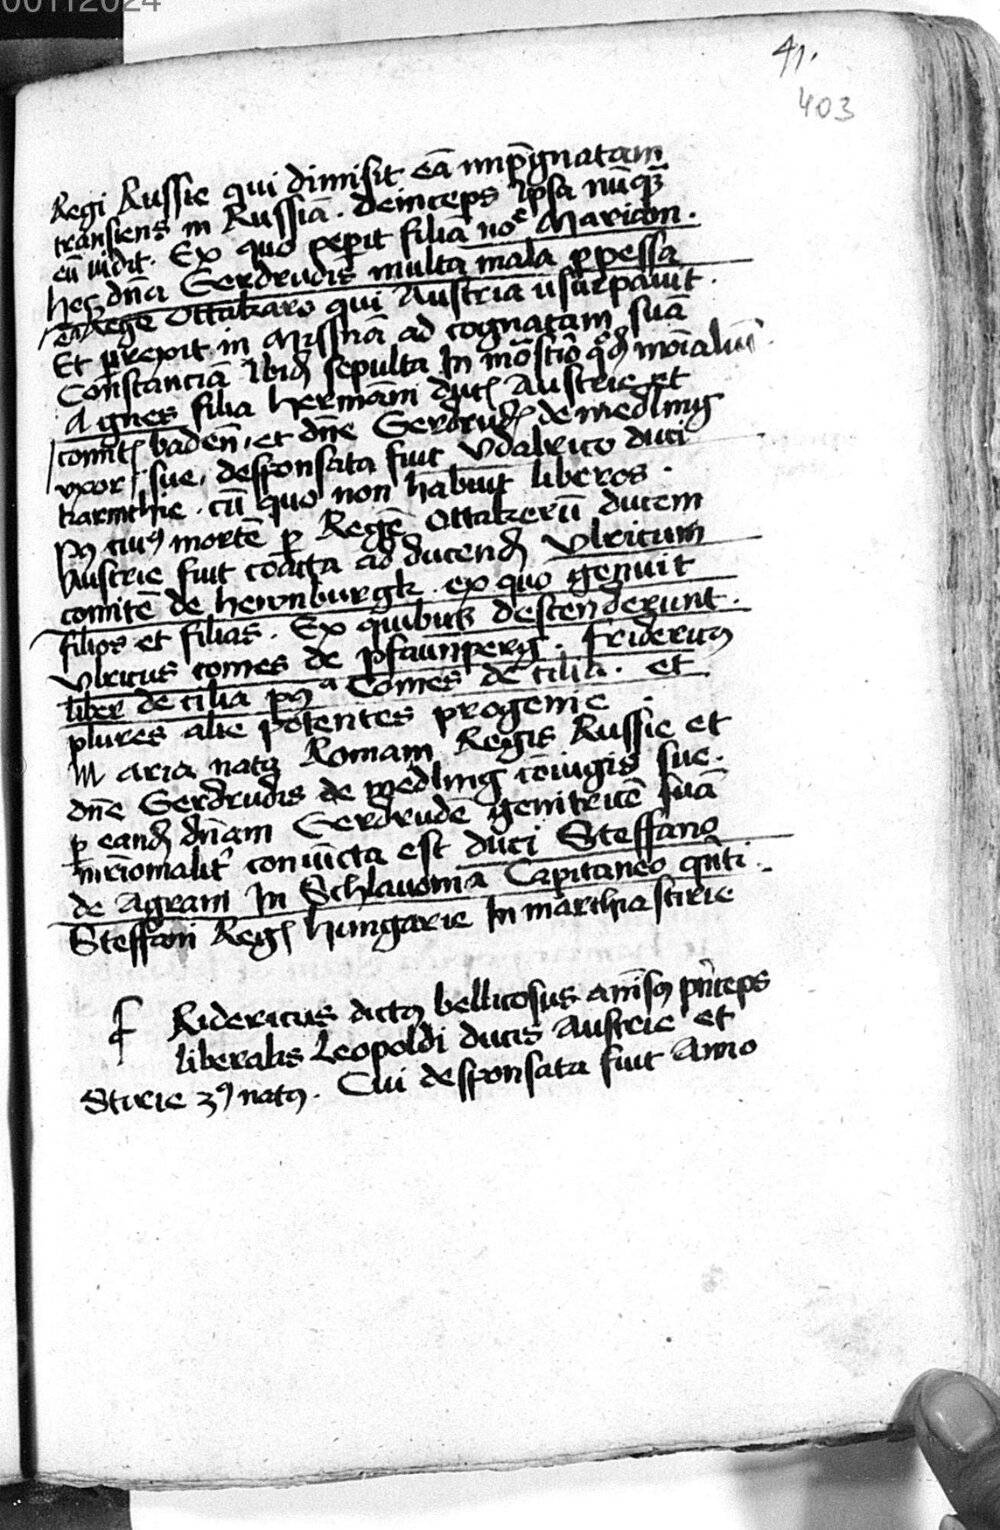 00112024
41.
403
Regi Russie qui dimisit eā imp̄gnatam
transiens in Russiā. deinceps ip̄sa nūqȝ
eū vidit. Ex quo peperit filiā noe Mariam.
hec dn̄a Gerdrudis multa mala ꝑpessa
ea Rege Ottakaro qui Austria usurpavit.
Et ꝑrexit in Missnā ad cognatam suā
Constanciā ibiđ sepulta In mōst̄io moīaliū.
Agnes filia hermāni duc̄ Austrie et
comit̄ badeñ. et dn̄e Gerdrud̄ de medling
vxor̄ sue, desponsata fuit Vdalrico duci
karinthie. cū quo non habuit liberos.
Pꝰ cuiꝰ mortē ꝑ Regē Ottakerū ducem
Austrie fuit coācta ad ducenđ Vlricum
comitē de hewnburgk. ex quo genuit
filios et filias. Ex quibus descenderunt.
Vlricus comes de pfannperg. Fridericꝰ
liber de cilia pꝰᵃ Comes de cilia. et
plures alie potentes progenie.
Maria natꝰ Romam Regis Russie et
dn̄e Gerdrudis de medling cōiugis sue.
ꝑ eanđ dn̄am Gerdrudē genitricē suā
coniūcta est duci Steffano
de Agram In Schlavonia Capitaneo
Steffani Reḡ hungarie In marchia stirie
FRidericus dictꝰ bellicosus pn̄ceps
liberalis Leopoldi ducis Austrie et
Stirie 3ꝰ natꝰ. Cui desponsata fuit Anno